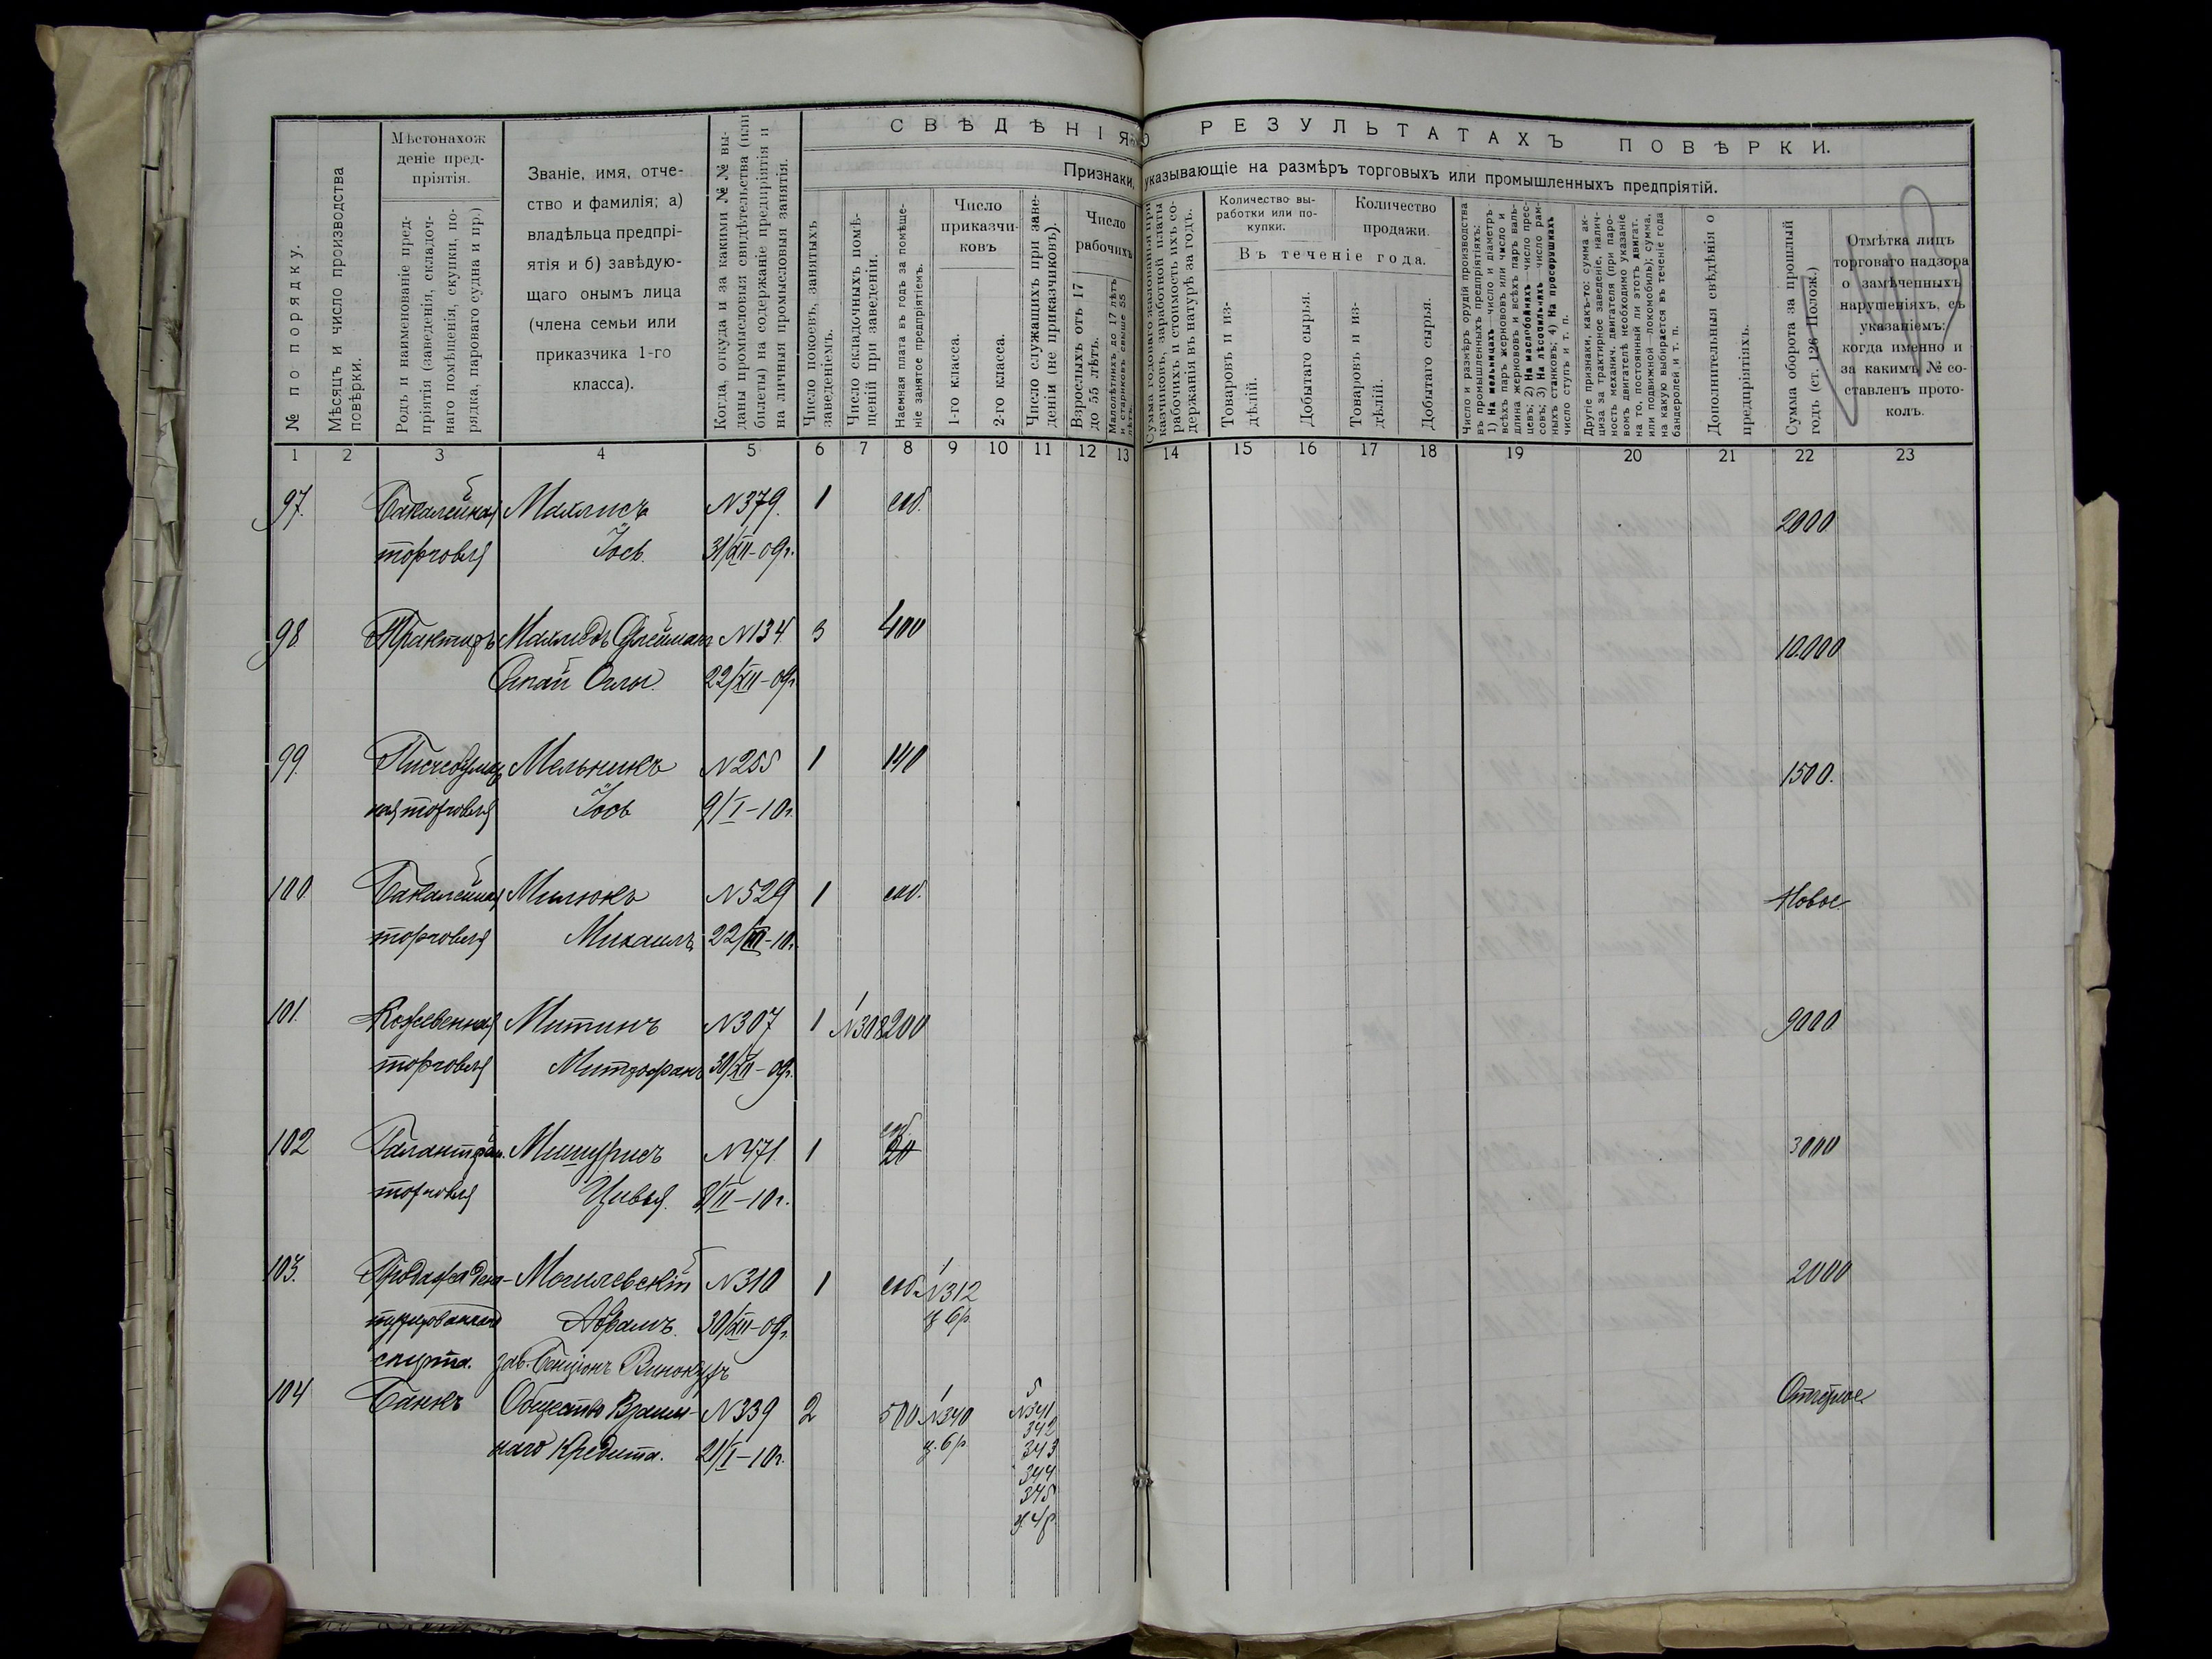 СВѢДѢНІЯ О РЕЗУЛЬТАТАХЪ ПОВѢРКИ.
Признаки, указывающіе на размѣръ торговыхъ или промышленныхъ предпріятій.
№ по порядку.
Мѣсяцъ и число производства
повѣрки.
Мѣстонахож
деніе пред-
пріятія.
Родъ и наименованіе пред-
пріятія (заведенія, складоч-
наго помѣщенія, скупки, по-
рядка, пароваго судна и пр.)
Званіе, имя, отче-
ство и фамилія; а)
владѣльца предпрі-
ятія и б) завѣдую-
щаго онымъ лица
(члена семьи или
приказчика 1-го
класса).
Когда, откуда и за какими № № вы-
даны промысловыя свидѣтельства (или
билеты) на содержаніе предпріятія и
на личныя промысловыя занятія.
Число покоевъ, занятыхъ
заведеніемъ.
Число складочныхъ помѣ-
щеній при заведеніи.
Наемная плата въ годъ за помѣще-
ніе занятое предпріятіемъ.
Число
приказчи-
ковъ
1-го класса.
2-го класса.
Число служащихъ при заве-
деніи (не приказчиковъ).
Число
рабочихъ
Взрослыхъ отъ 17
до 55 лѣтъ.
Малолѣтнихъ до 17 лѣтъ
и стариковъ свыше 55
лѣтъ.
Сумма годового жалованья при-
казчиковъ, заработной платы
рабочихъ и стоимость ихъ со-
держанія въ натурѣ за годъ.
Количество вы-
работки или по-
купки.
Количество
продажи.
Въ теченіе года.
Товаровъ и из-
дѣлій.
Добытаго сырья.
Товаровъ и из-
дѣлій.
Добытаго сырья.
Число и размѣръ орудій производства
въ промышленныхъ предпріятіяхъ:
1) На мельницахъ—число и діаметръ
всѣхъ паръ жернововъ или число и
длина жернововъ и всѣхъ паръ валь-
цевъ; 2) На маслобойняхъ—число прес-
совъ; 3) На лѣсопильняхъ—число рам-
ныхъ станковъ; 4) На просорушняхъ
число ступъ и т. п.
Другіе признаки, какъ-то: сумма ак-
циза за трактирное заведеніе, налич-
ность механич. двигателя (при паро-
вомъ двигателѣ необходимо указаніе
на то, постоянный ли этотъ двигат.
или подвижной—локомобиль); сумма,
на какую выбирается въ теченіе года
бандеролей и т. п.
Дополнительныя свѣдѣнія о
предпріятіяхъ.
Сумма оборота за прошлый
годъ (ст. 126 Полож.)
Отмѣтка лицъ
торговаго надзора
о замѣченныхъ
нарушеніяхъ, съ
указаніемъ:
когда именно и
за какимъ № со-
ставленъ прото-
колъ.
1 2 3 4 5 6 7 8 9 10 11 12 13 14 15 16 17 18 19 20 21 22 23
97. Бакалейная Махлисъ №379. 1 соб. 2000
торговля Іось. 31/XII-09г.
98 Трактиръ №134 3 400 10.000
22/XII-09г
99. Писчебумаж Мельникъ №255 1 140 1500.
ная торговля Іось 9/I-10г.
100 Бакалейная Милюкъ №529 1 соб. Новое
торговля Михаилъ 22/III-10г.
101. Кожевенная Митинъ №307 1 1 200 9000
№308
торговля Митрофанъ 30/XII-09г.
102 Галантерейн. Мишурисъ №471. 1 соб. 3000
20
торговля Цивья. 8/II-10г.
103. Продажа дена- Могилевскій №310 1 соб. 1 2000
№312
турированнаго Абрамъ. 30/XII-09г. ц 6р.
спирта. зав. Винокуръ
104 Банкъ Общество Взаим- №339 2 500 1 5 Отчетное
№340 №341
наго Кредита. 21/I-10г. ц. 6р. 342
343
344
345
ц. 4р.